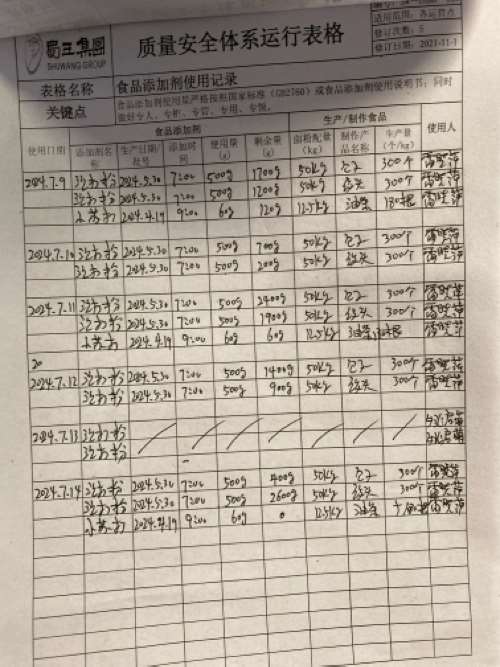 蜀王集团
SHUWANG GROUP
质量安全体系运行表格
适用范围：各运营点
修订次数：5
修订日期：2021-11-1
表格名称 食品添加剂使用记录
关键点 食品添加剂使用量严格按照国家标准（GB2760）或食品添加剂使用说明书；同时做好专人、专柜、专管、专用、专领。
使用日期 食品添加剂 生产/制作食品 使用人
添加剂名称 生产日期/批号 添加时间 使用量(g) 剩余量(g) 面粉配量(kg) 制作产品名称 生产量(个/kg)
2024.7.9 泡打粉 2024.5.30 7:00 500g 1700g 50kg 包子 300个
泡打粉 2024.5.30 7:00 500g 1200g 50kg 馒头 300个
小苏打 2024.4.19 9:00 60g 120g 12.5kg 油条 180根
2024.7.10 泡打粉 2024.5.30 7:00 500g 700g 50kg 包子 300个
泡打粉 2024.5.30 7:00 500g 200g 50kg 馒头 300个
2024.7.11 泡打粉 2024.5.30 7:00 500g 2400g 50kg 包子 300个
泡打粉 2024.5.30 7:00 500g 1900g 50kg 馒头 300个
小苏打 2024.4.19 9:00 60g 60g 12.5kg 油条 180根
20
2024.7.12 泡打粉 2024.5.30 7:00 500g 1400g 50kg 包子 300个
泡打粉 2024.5.30 7:00 500g 900g 50kg 馒头 300个
2024.7.13 泡打粉
泡打粉
2024.7.14 泡打粉 2024.5.30 7:00 500g 400g 50kg 包子 300个
泡打粉 2024.5.30 7:00 500g 2600g 50kg 馒头 300个
小苏打 2024.4.19 9:00 60g 0 12.5kg 油条